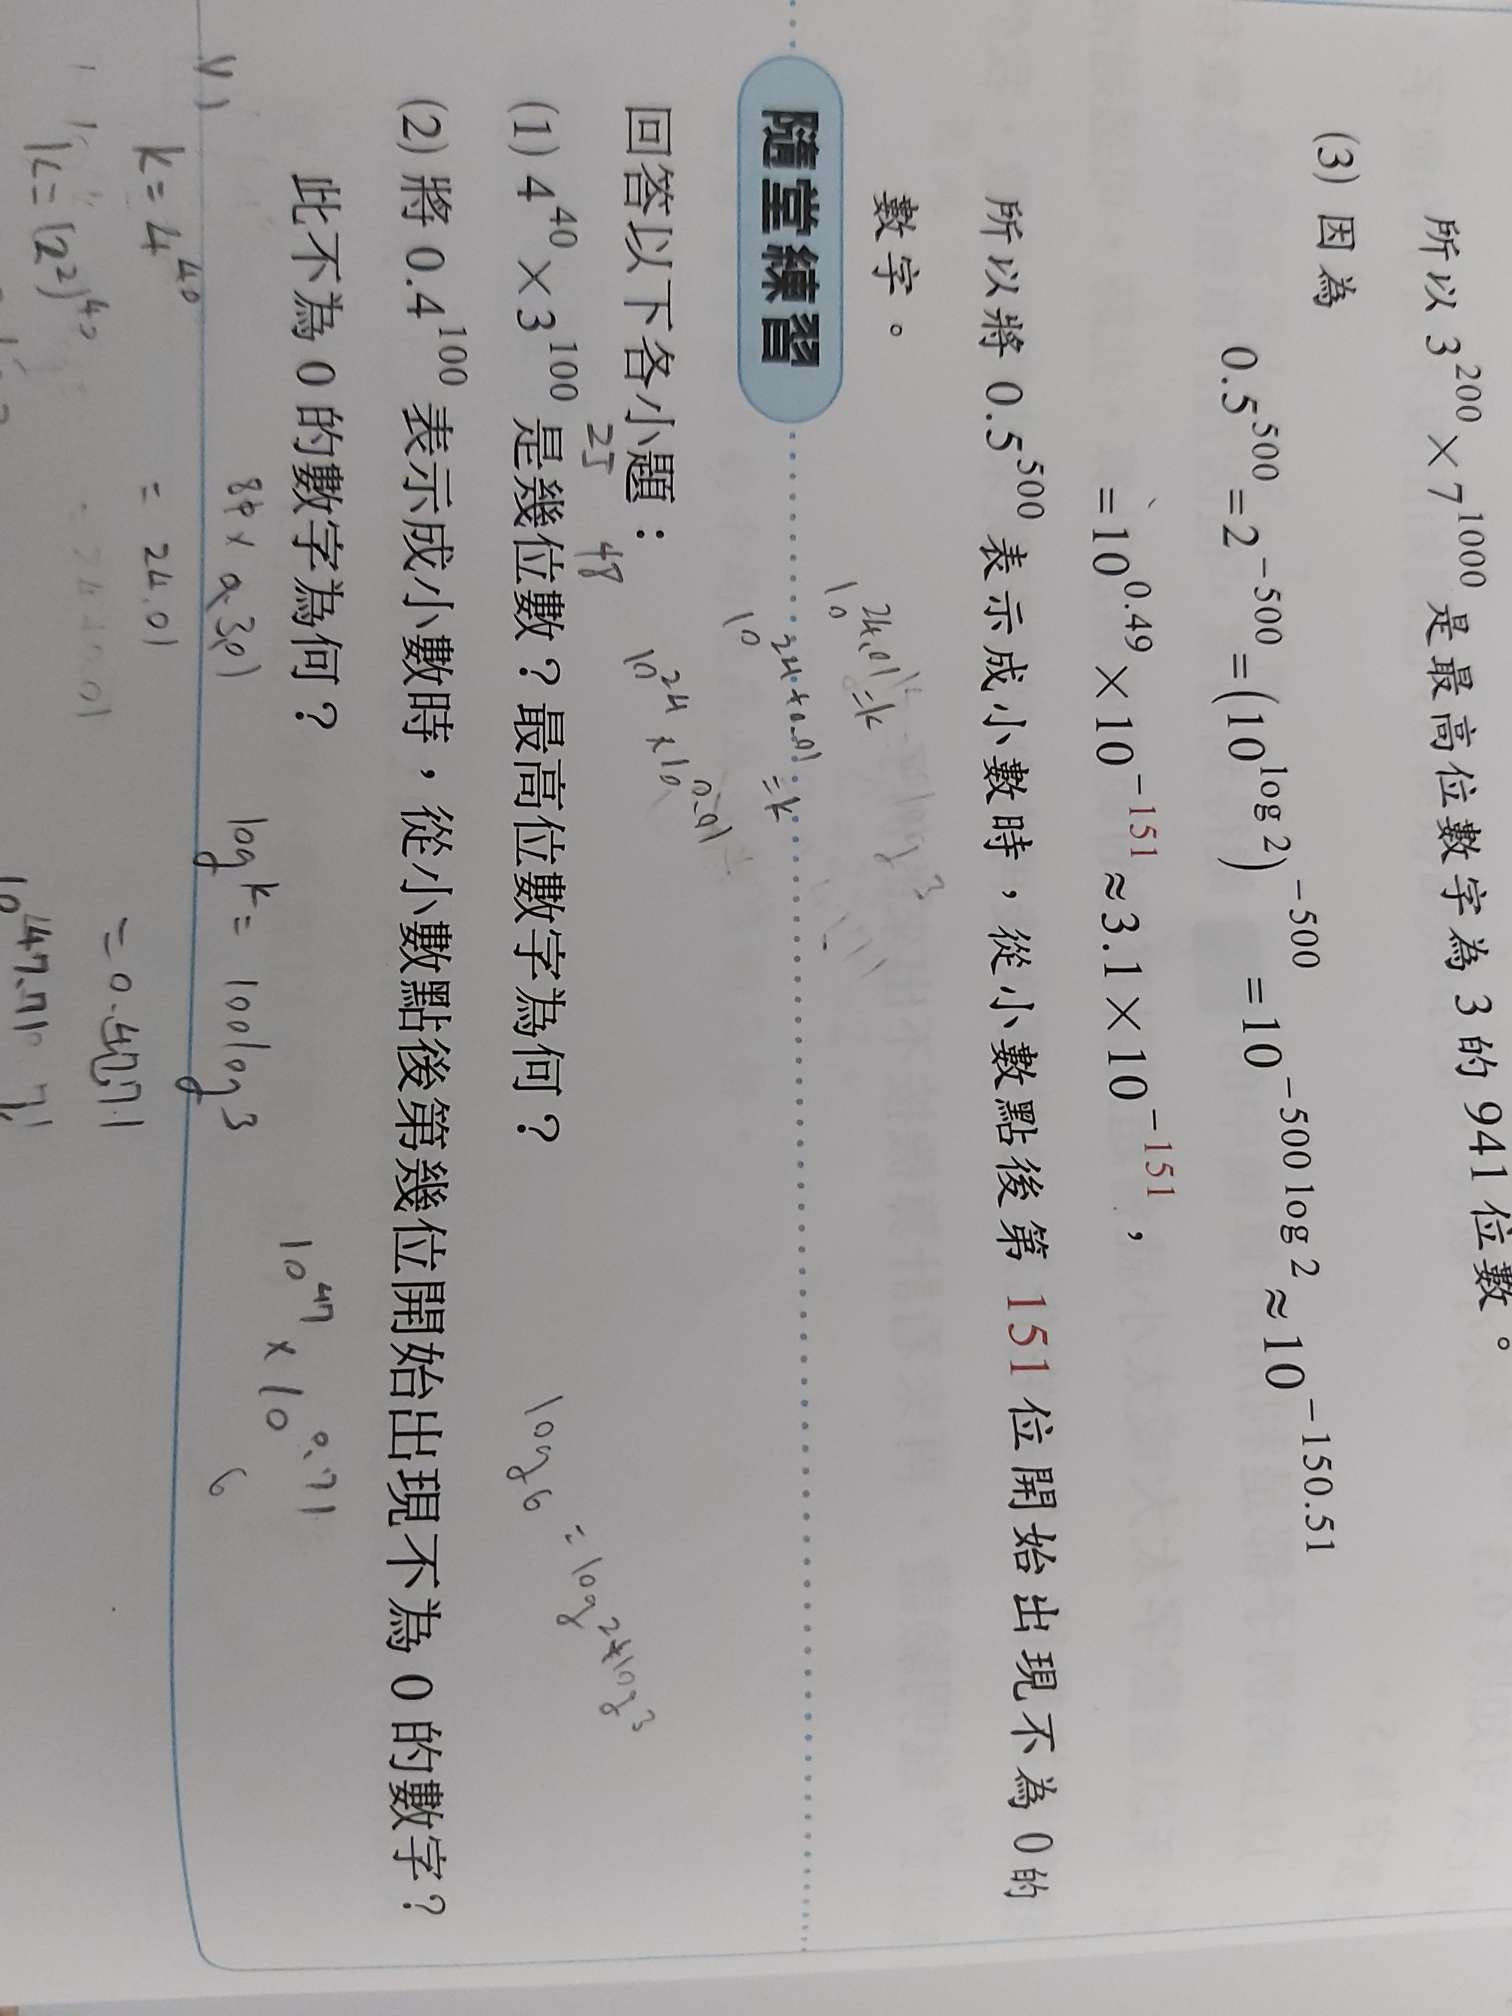 所以 3^200 × 7^1000 是最高位數字為 3 的 941 位數。
(3) 因為
0.5^500 = 2^-500 = (10^log 2)^-500 = 10^-500 log 2 ≈ 10^-150.51
= 10^0.49 × 10^-151 ≈ 3.1 × 10^-151，
所以將 0.5^500 表示成小數時，從小數點後第 151 位開始出現不為 0 的
數字。
隨堂練習
10^24.01 = k
10^24+0.01 = k
10^24 × 10^0.01
回答以下各小題：
25 48
(1) 4^40 × 3^100 是幾位數？最高位數字為何？
log 6 = log 2 + log 3
(2) 將 0.4^100 表示成小數時，從小數點後第幾位開始出現不為 0 的數字？
此不為 0 的數字為何？
10^47 × 10^0.71
log k = 100 log 3
6
k = 4^40
= 24.01
= 0.4771
k = (2^2)^40
10^47.71